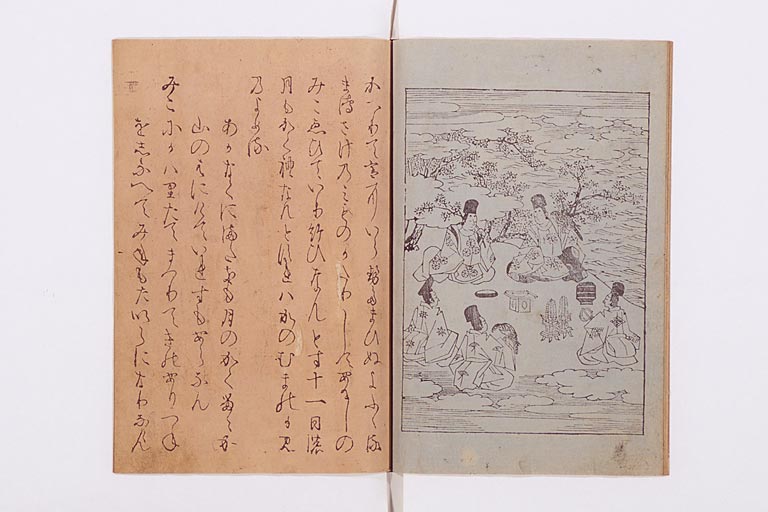 かへりて宮にいらせたまひぬよふくる
まてさけのみものかたりしてあるしの
みこゑひていり給ひなんとす十一日の
月もかくれなんとすれはかのむまのかみ
のよめる
あかなくにまたきも月のかくるゝか
山のはにけていれすもあらなん
みこにかはりたてまつりてきのありつね
をしなへてみねもたいらになりなゝん